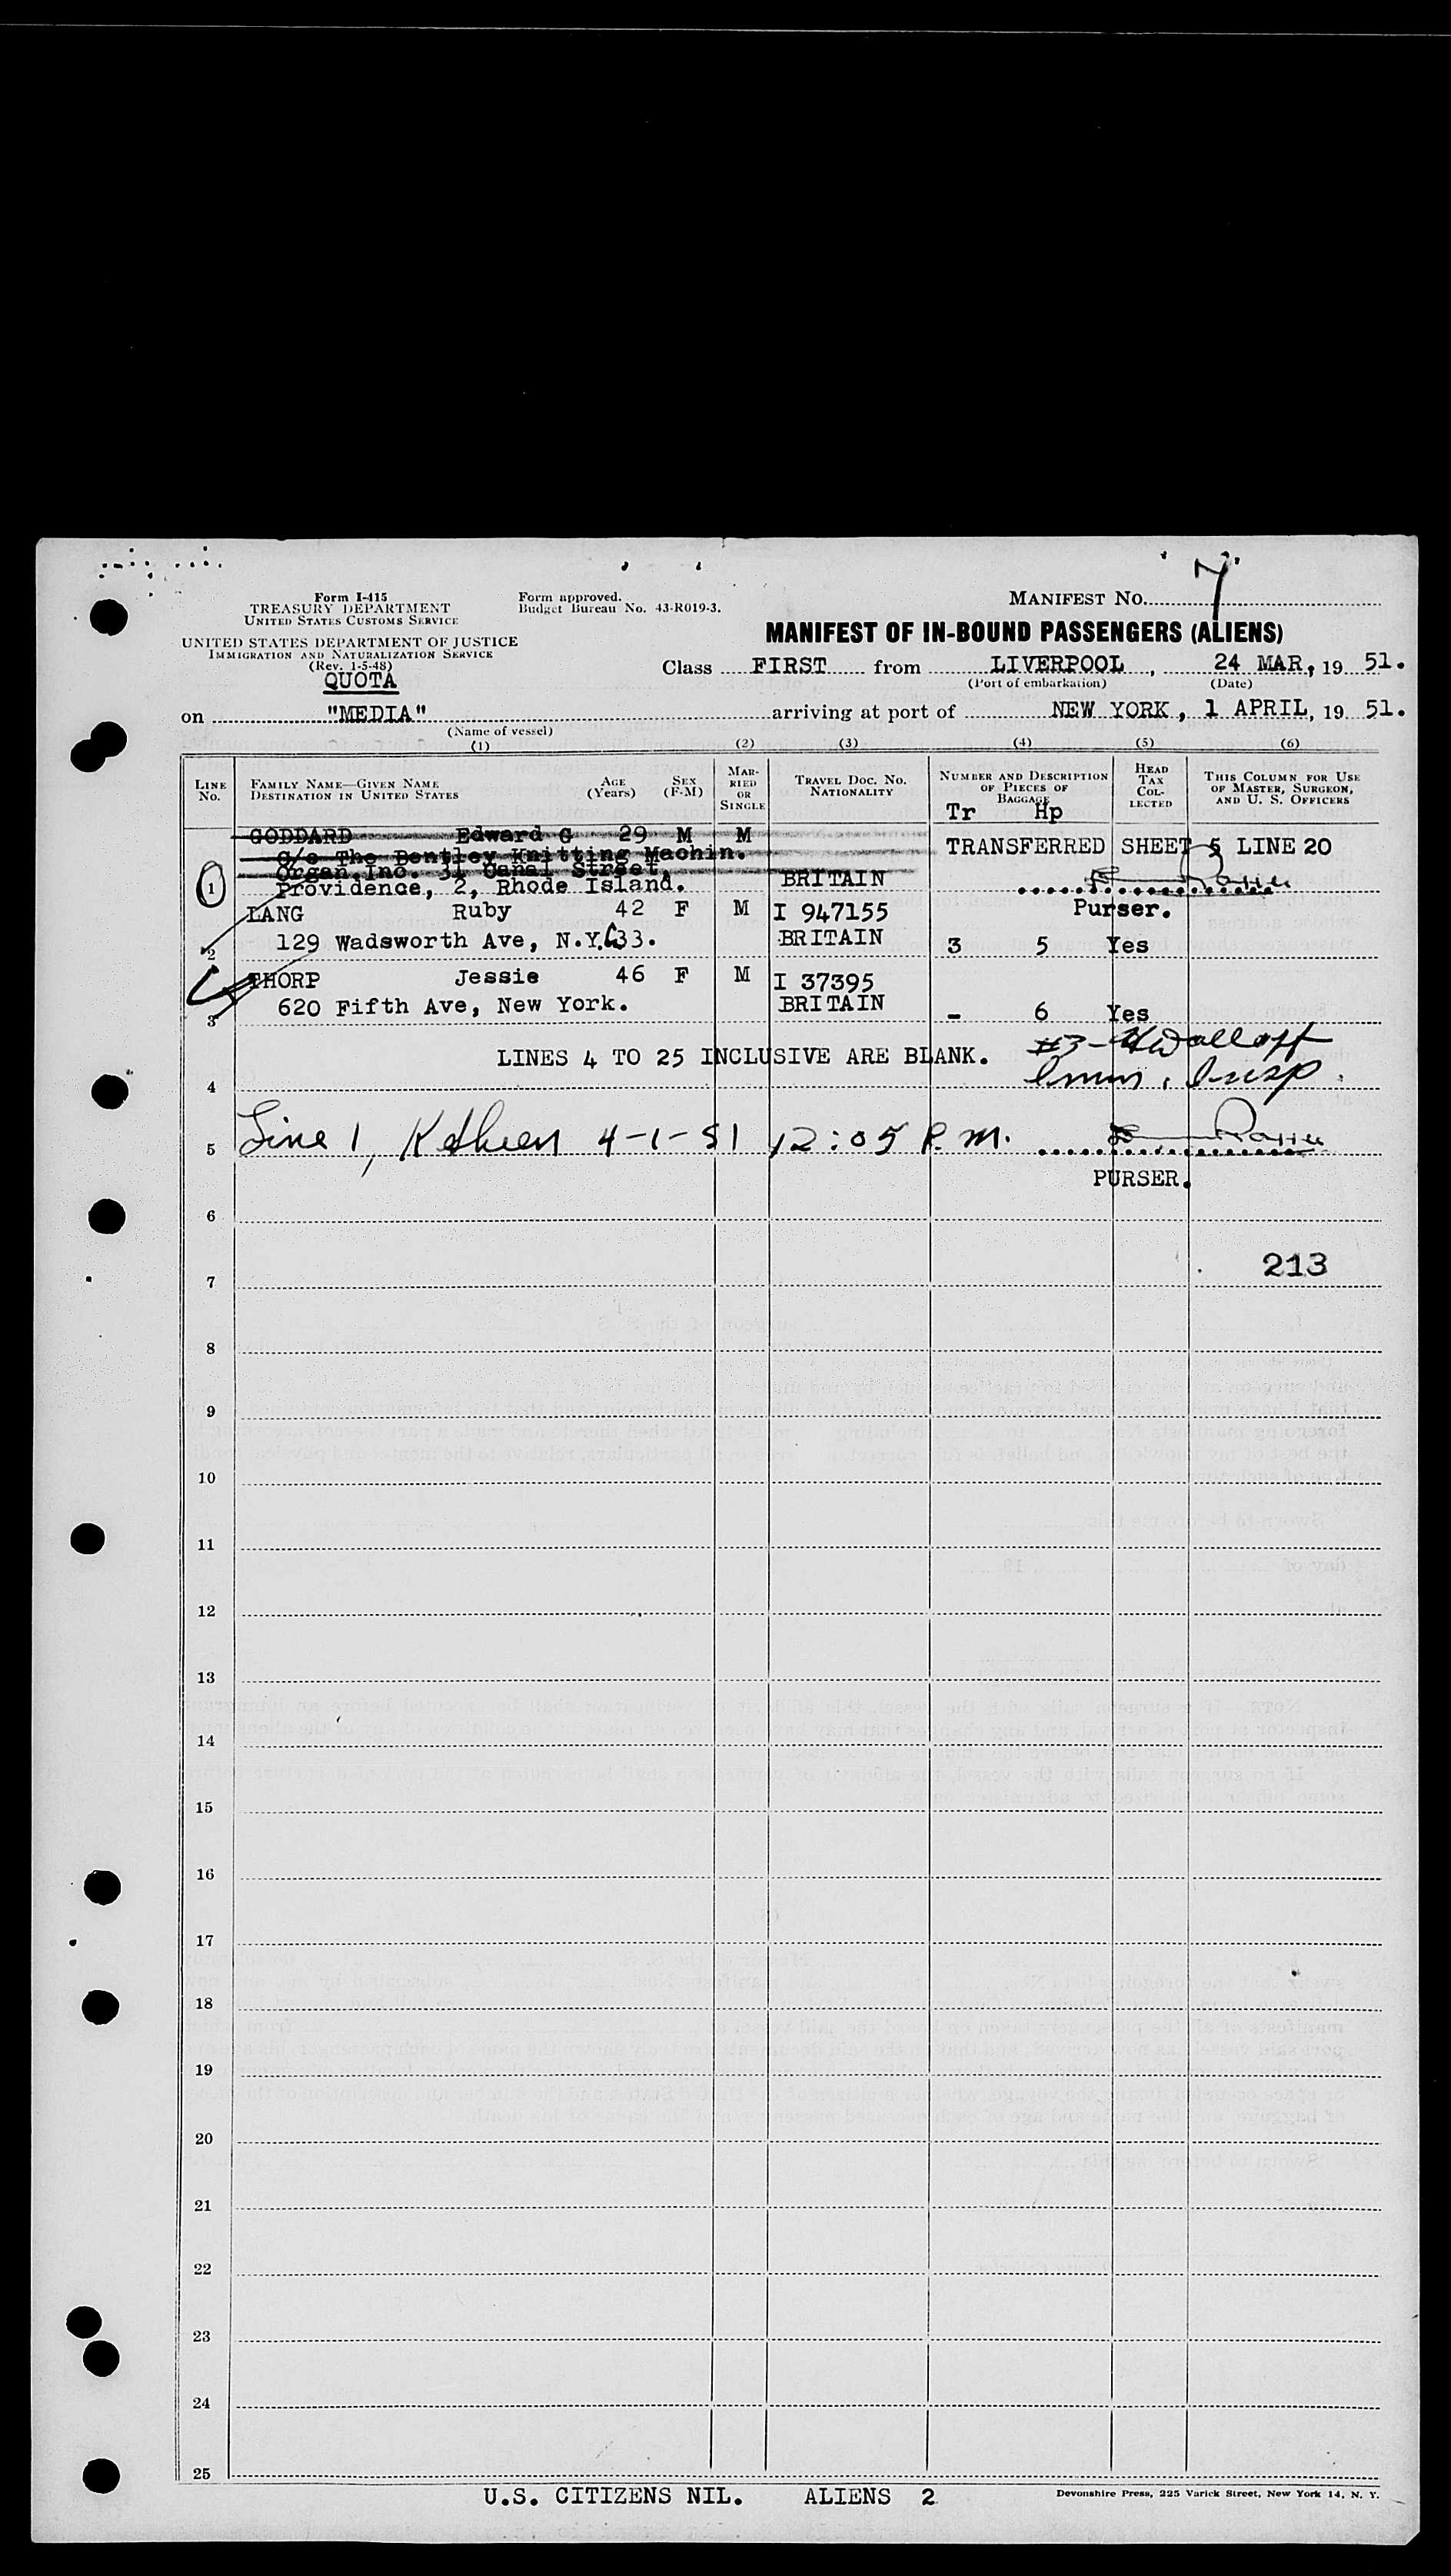 Form I-415
TREASURY DEPARTMENT
UNITED STATES CUSTOMS SERVICE
UNITED STATES DEPARTMENT OF JUSTICE
IMMIGRATION AND NATURALIZATION SERVICE
(Rev. 1-5-48)
QUOTA
Form approved.
Budget Bureau No. 43-R019-3.
MANIFEST NO. 7
MANIFEST OF IN-BOUND PASSENGERS (ALIENS)
Class FIRST from LIVERPOOL, 24 MAR, 19 51.
(Port of embarkation) (Date)
on "MEDIA" arriving at port of NEW YORK, 1 APRIL, 19 51.
(Name of vessel)
(1) (2) (3) (4) (5) (6)
LINE No. FAMILY NAME—GIVEN NAME DESTINATION IN UNITED STATES AGE (Years) SEX (F-M) MARRIED OR SINGLE TRAVEL DOC. NO. NATIONALITY NUMBER AND DESCRIPTION OF PIECES OF BAGGAGE HEAD TAX COLLECTED THIS COLUMN FOR USE OF MASTER, SURGEON, AND U. S. OFFICERS
Tr Hp
GODDARD Edward G 29 M M
C/o The Bentley Knitting Machin. TRANSFERRED SHEET 5 LINE 20
Organ.Inc. 31 Canal Street,
1 Providence, 2, Rhode Island. BRITAIN
LANG Ruby 42 F M I 947155 Purser.
2 129 Wadsworth Ave, N.Y.C33. BRITAIN 3 5 Yes
THORP Jessie 46 F M I 37395
3 620 Fifth Ave, New York. BRITAIN - 6 Yes
LINES 4 TO 25 INCLUSIVE ARE BLANK. #3-
4 Immn. Insp.
5 Line 1, 4-1-51 12:05 P.M.
PURSER.
6
213
7
8
9
10
11
12
13
14
15
16
17
18
19
20
21
22
23
24
25
U.S. CITIZENS NIL. ALIENS 2
Devonshire Press, 225 Varick Street, New York 14, N. Y.